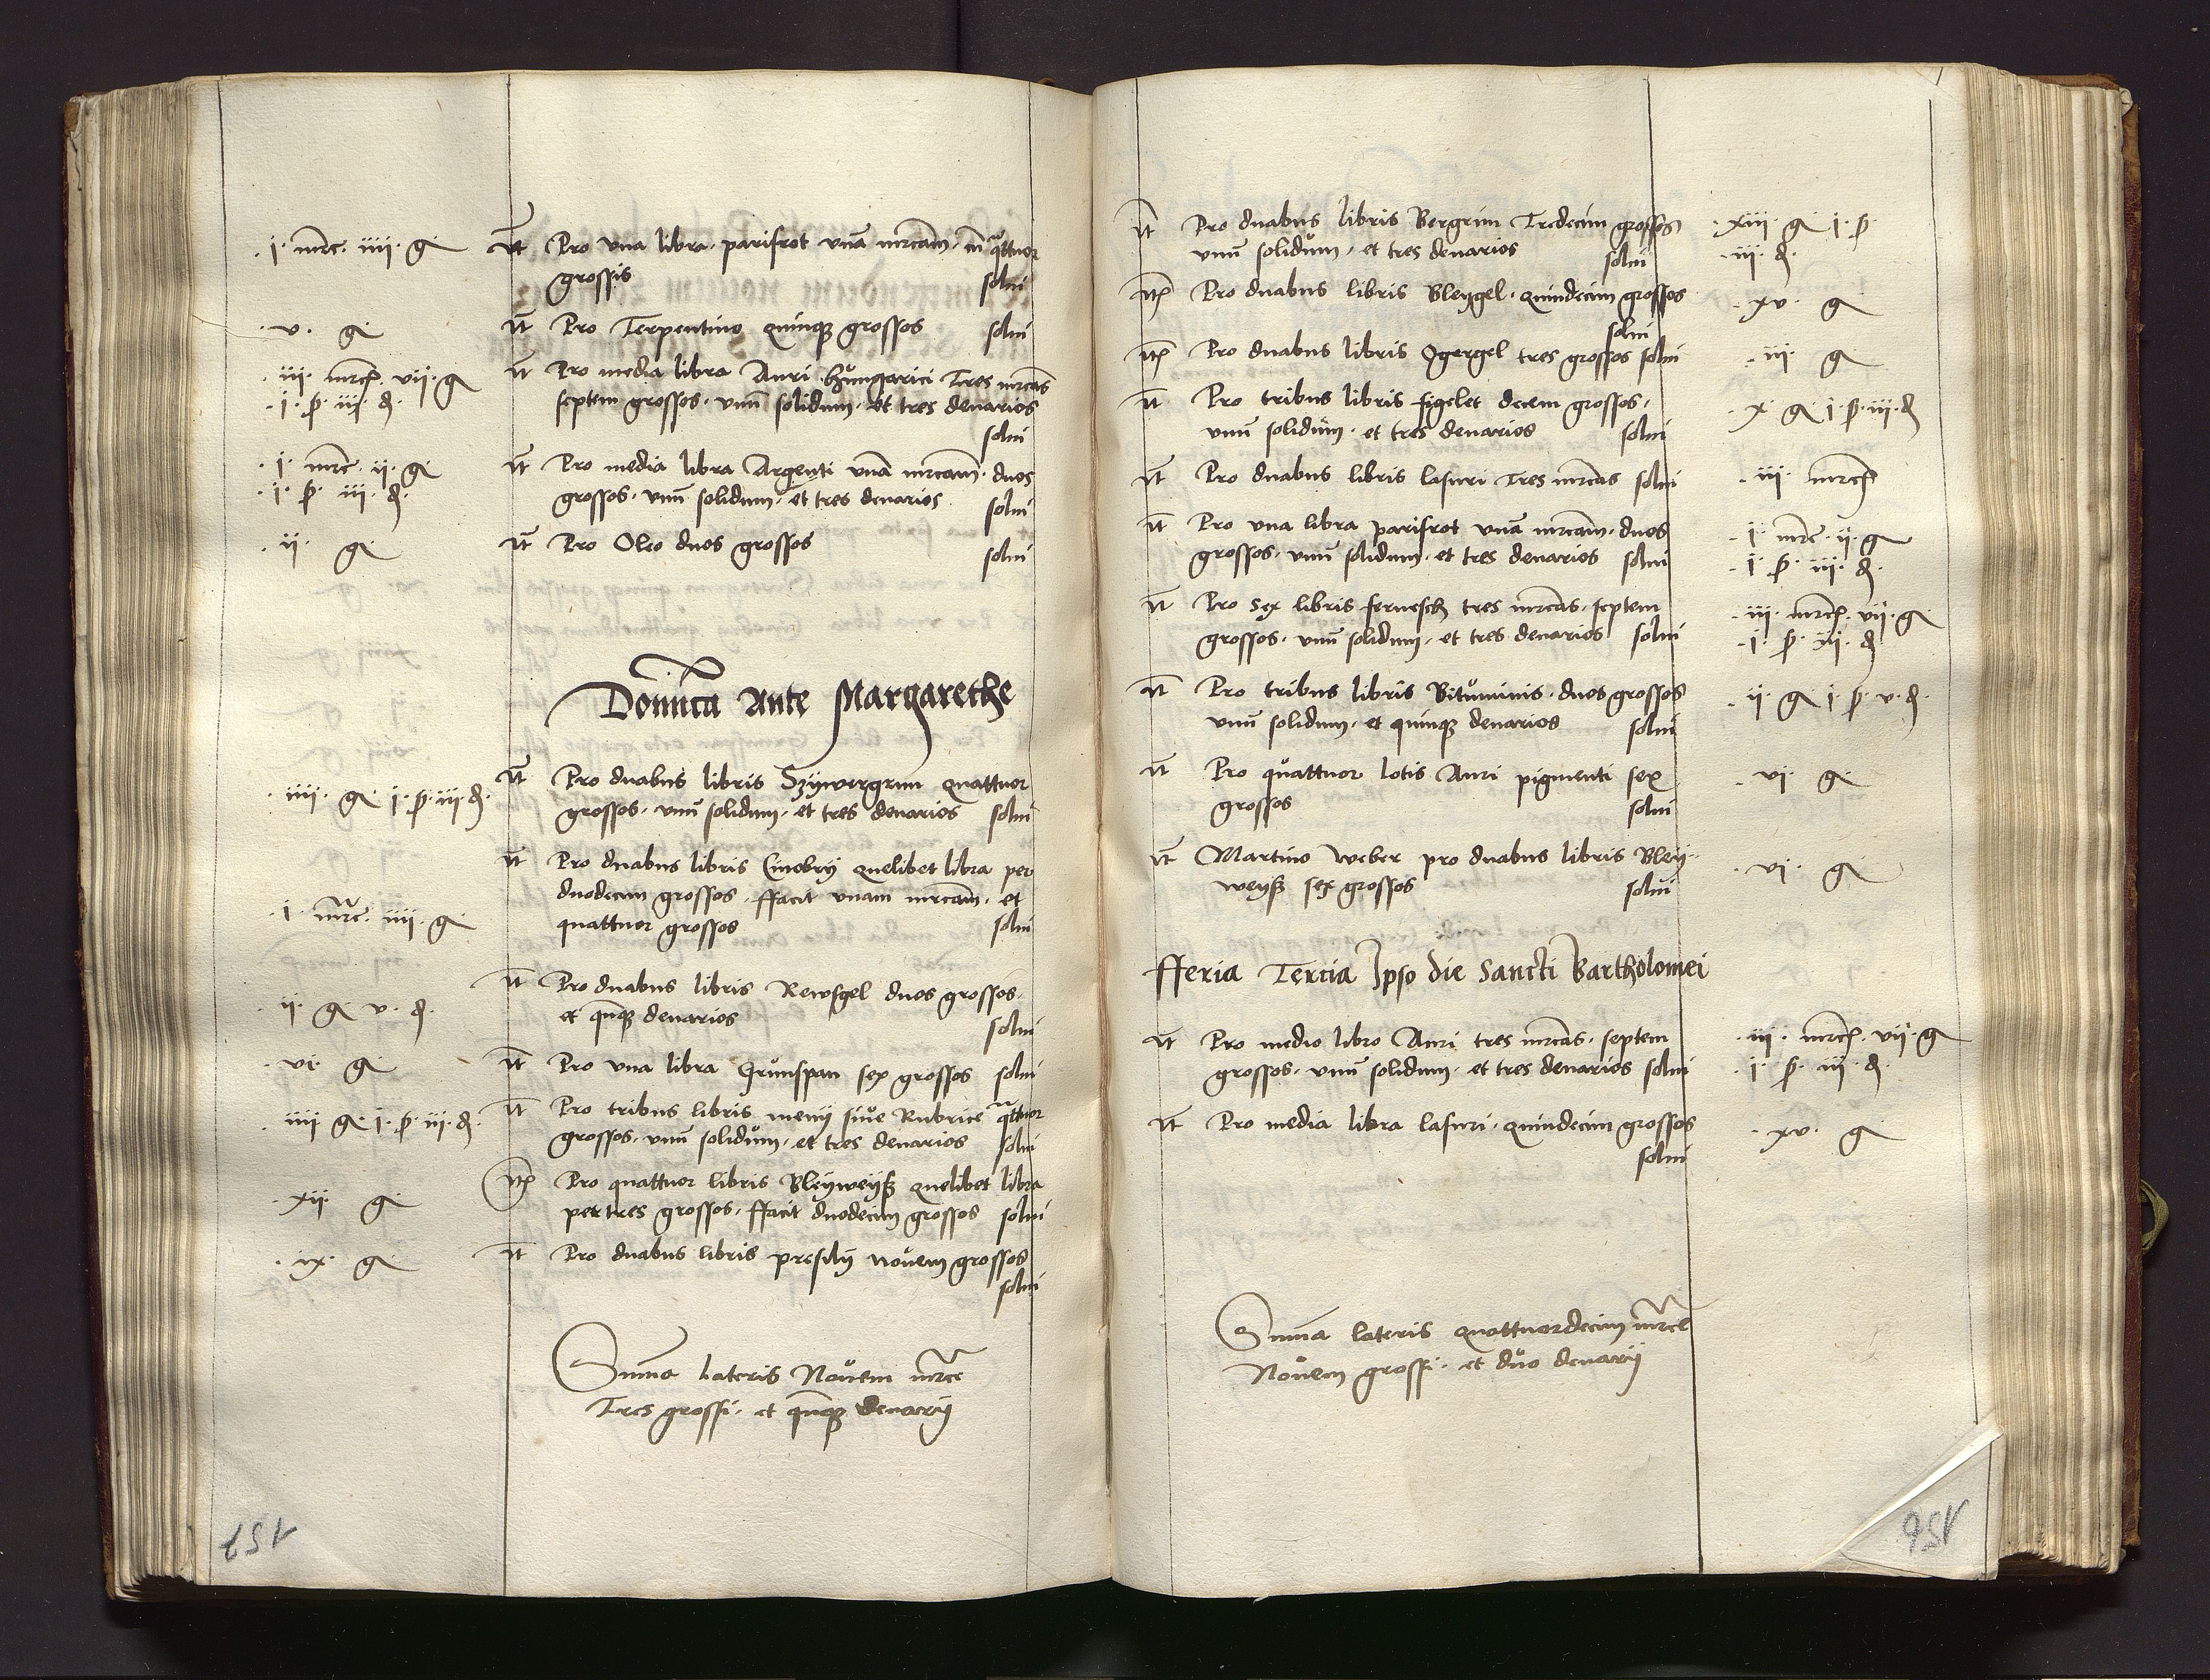 ·i· mrc· iiii· g̃
It Pro una libra· parisrot unā mrcam̄· cū q̃ttuor
grossis solui
·v· g̃
It Pro Terpentino quinq̃ grossos solui
·iii· mrcẽ· vii· g̃
·i· ß· iii· đ·
It Pro media libra Auri hŭngarici Tres mrcās
septem grossos· unū solidum· et tres denarios
solui
·i· mrc· ii· g̃
·i· ß· iii· đ·
It Pro media libra Argenti unā mrcam̄· duos
grossos· unū solidum· et tres denarios solui
·ii· g̃
It Pro Oleo duos grossos solui
Domīca Ante Margarethe
·iiii· g̃ i· ß· iii· đ·
It Pro duabus libris Szywergrun quattuor
grossos· unū solidum· et tres denarios solui
·i· mrc· iiii· g̃
It Pro duabus libris Cinobrij quelibet libra per
duodecim grossos· ffacit unam mrcam̄· et
quattuor grossos solui
·ii· g̃ v· đ·
It Pro duabus libris Rewsgel duos grossos·
et quīq̃ denarios solui
·vi· g̃
It Pro una libra Grŭnspan sex grossos solui
·iiii g̃ i· ß· iii· đ·
It Pro tribus libris menij siŭe Rubrice q̃ttuor
grossos· unū solidŭm· et tres denarios solui
·xii· g̃
Itẽ Pro quattuor libris Bleyweyß quelibet libra
per tres grossos· ffacit duodecim grossos solui
·ix· g̃
It Pro duabus libris presilij noŭem grossos
solui
Sum̄a lateris Noŭem mrce
Tres grossi· et quīq̃ denarij
157
It Pro duabus libris Bergrun Tredecim grossos
unū solidŭm· et tres denarios solui
·xiii· g̃ i· ß·
·iii· đ·
Itẽ Pro duabus libris Bleygel· quindecim grossos
solui
·xv· g̃
Itẽ Pro duabus libris Ogergel tres grossos solui
·iii· g̃
It Pro tribus libris figelet decem grossos·
unū solidŭm· et tres denarios solui
·x· g̃ i· ß· iii· đ
It Pro duabus libris lasuri Tres mrcās solui
·iii· mrcẽ
It Pro una libra parisrot unā mrcam̄· duos
grossos· unū solidum· et tres denarios solui
·i· mrc· ii· g̃
·i· ß· iii· đ·
It Pro sex libris ferneseh tres mrcās· septem
grossos· unū solidum· et tres denarios solui
·iii· mrcẽ· vii· g̃
·i· ß· iii· đ
It Pro tribus libris Bitŭminis· duos grossos
unū solidum· et quinq̃ denarios solui
·ii· g̃ i· ß· v· đ·
It Pro quattuor lotis Auri pigmenti sex
grossos solui
·vi· g̃
It Martino Weber pro duabus libris Bley-
weyß sex grossos solui
·vi· g̃
fferia Tercia Ipso die Sancti Bartholomei
It Pro medio libro Auri tres mrcās· septem
grossos· unū solidum· et tres denarios solui
·iii· mrcẽ· vii· g̃
·i· ß· iii· đ·
It Pro media libra lasuri· quindecim grossos
solui
·xv· g̃
Sum̄a lateris quattuordecim mrce
Noŭem grossi· et dŭo denarij
156